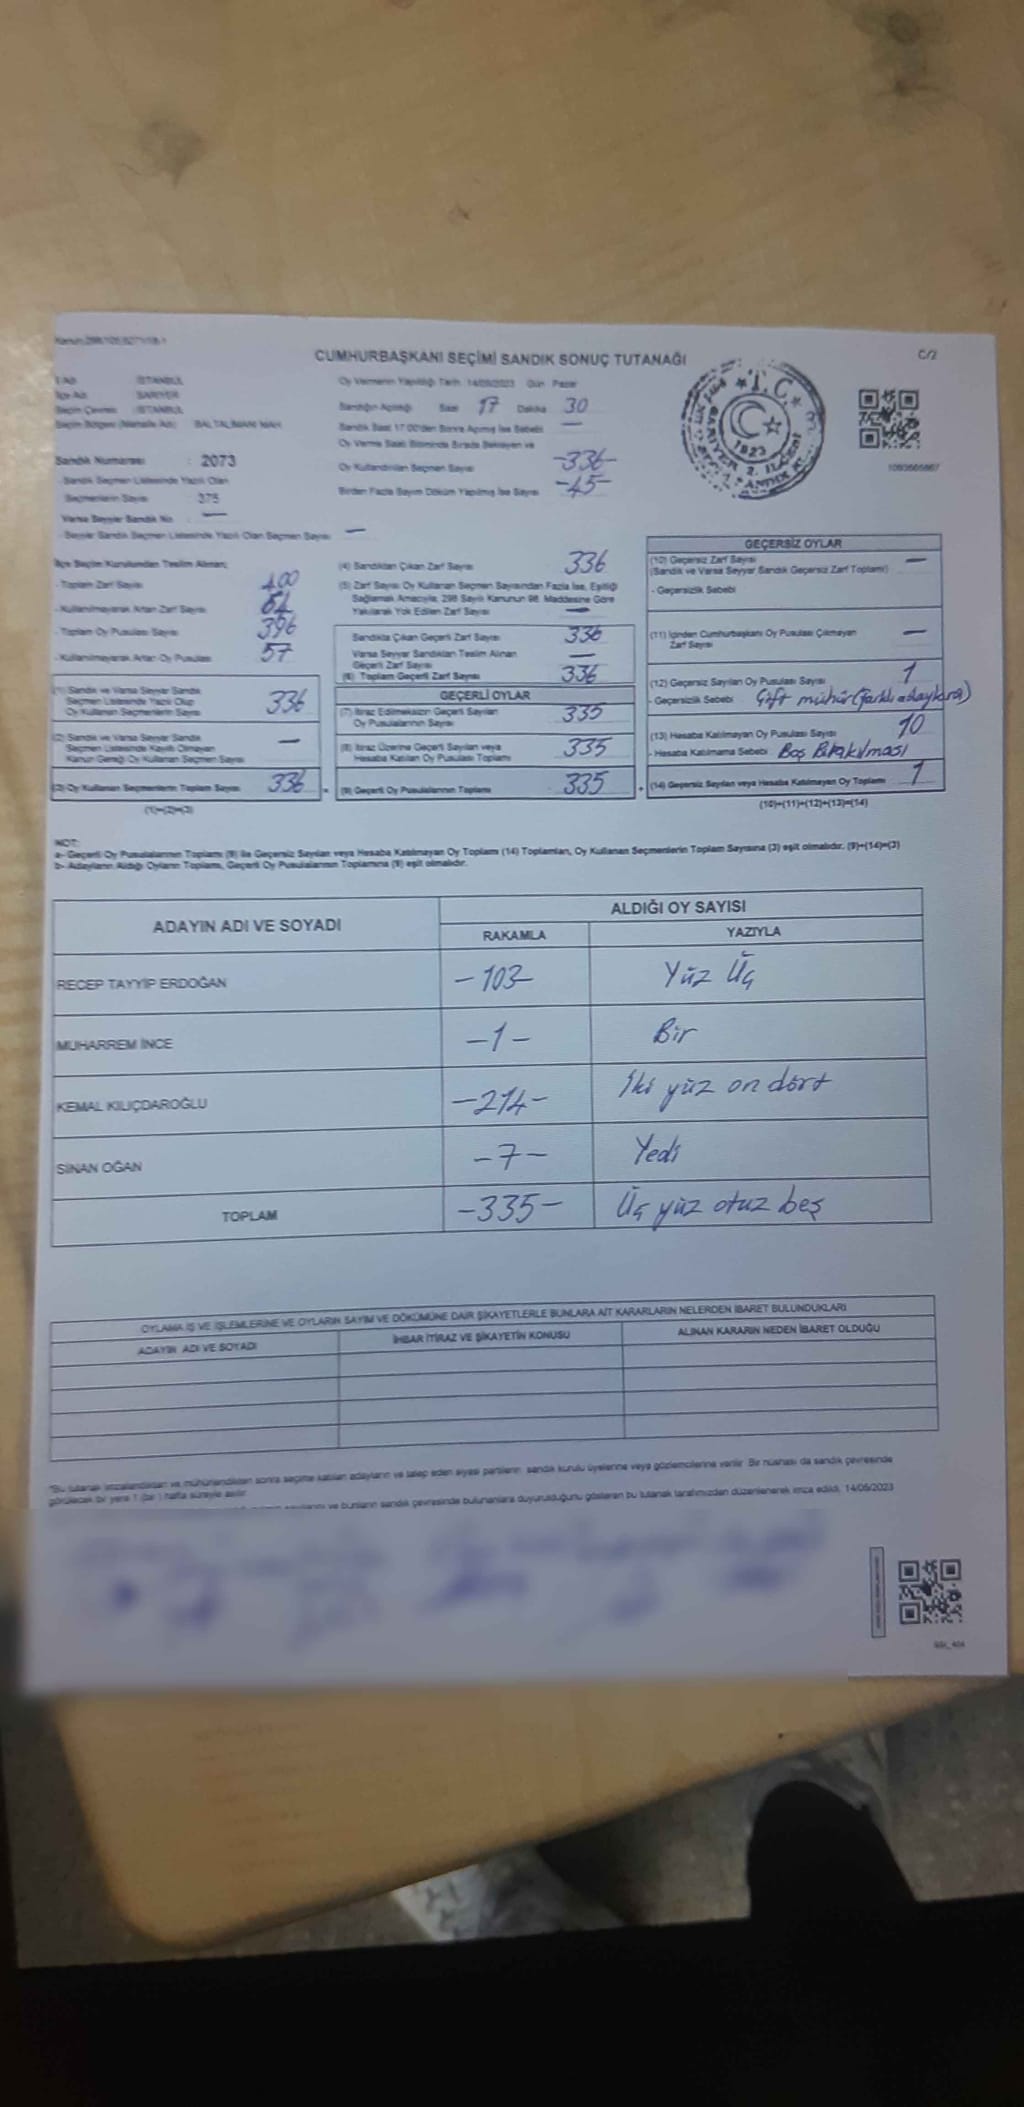 CUMHURBAŞKANI SEÇİMİ SANDIK SONUÇ TUTANAĞI
C/2
İl Adı : İSTANBUL
İlçe Adı : SARIYER
Seçim Çevresi : İSTANBUL
Seçim Bölgesi (Mahalle Adı) : BALTALİMANI MAH
Sandık Numarası : 2073
Sandık Seçmen Listesinde Yazılı Olan
Seçmenlerin Sayısı : 375
Varsa Seyyar Sandık No : —
Seyyar Sandık Seçmen Listesinde Yazılı Olan Seçmen Sayısı : —
Oy Vermenin Yapıldığı Tarih: 14/05/2023 Gün: Pazar
Sandığın Açıldığı Saat 17 Dakika 30
Sandık Saat 17:00'den Sonra Açılmış İse Sebebi —
Oy Verme Saati Bitiminde Sırada Bekleyen ve
Oy Kullandırılan Seçmen Sayısı -336-
Birden Fazla Sayım Döküm Yapılmış İse Sayısı -45-
T.C.
1923
SARIYER 2. İLÇE
1093605867
İlçe Seçim Kurulundan Teslim Alınan;
- Toplam Zarf Sayısı 400
- Kullanılmayarak Artan Zarf Sayısı 64
- Toplam Oy Pusulası Sayısı 396
- Kullanılmayarak Artan Oy Pusulası 57
(1) Sandık ve Varsa Seyyar Sandık
Seçmen Listesinde Yazılı Olup
Oy Kullanan Seçmenlerin Sayısı 336
(2) Sandık ve Varsa Seyyar Sandık
Seçmen Listesinde Kayıtlı Olmayan
Kanun Gereği Oy Kullanan Seçmen Sayısı —
(3) Oy Kullanan Seçmenlerin Toplam Sayısı 336
(1)+(2)=(3)
(4) Sandıktan Çıkan Zarf Sayısı 336
(5) Zarf Sayısı Oy Kullanan Seçmen Sayısından Fazla İse, Eşitliği
Sağlamak Amacıyla, 298 Sayılı Kanunun 98. Maddesine Göre
Yakılarak Yok Edilen Zarf Sayısı —
Sandıkta Çıkan Geçerli Zarf Sayısı 336
Varsa Seyyar Sandıktan Teslim Alınan
Geçerli Zarf Sayısı —
(6) Toplam Geçerli Zarf Sayısı 336
GEÇERLİ OYLAR
(7) İtiraz Edilmeksizin Geçerli Sayılan
Oy Pusulalarının Sayısı 335
(8) İtiraz Üzerine Geçerli Sayılan veya
Hesaba Katılan Oy Pusulası Toplamı 335
(9) Geçerli Oy Pusulalarının Toplamı 335
GEÇERSİZ OYLAR
(10) Geçersiz Zarf Sayısı
(Sandık ve Varsa Seyyar Sandık Geçersiz Zarf Toplamı) —
- Geçersizlik Sebebi
(11) İçinden Cumhurbaşkanı Oy Pusulası Çıkmayan
Zarf Sayısı —
(12) Geçersiz Sayılan Oy Pusulası Sayısı 1
- Geçersizlik Sebebi Çift mühür (farklı adaylara)
(13) Hesaba Katılmayan Oy Pusulası Sayısı 10
- Hesaba Katılmama Sebebi Boş Bırakılması
(14) Geçersiz Sayılan veya Hesaba Katılmayan Oy Toplamı 1
(10)+(11)+(12)+(13)=(14)
NOT:
a- Geçerli Oy Pusulalarının Toplamı (9) ile Geçersiz Sayılan veya Hesaba Katılmayan Oy Toplamı (14) Toplamları, Oy Kullanan Seçmenlerin Toplam Sayısına (3) eşit olmalıdır. (9)+(14)=(3)
b- Adayların Aldığı Oyların Toplamı, Geçerli Oy Pusulalarının Toplamına (9) eşit olmalıdır.
ADAYIN ADI VE SOYADI
ALDIĞI OY SAYISI
RAKAMLA
YAZIYLA
RECEP TAYYİP ERDOĞAN -103- Yüz Üç
MUHARREM İNCE -1- Bir
KEMAL KILIÇDAROĞLU -214- İki yüz on dört
SİNAN OĞAN -7- Yedi
TOPLAM -335- Üç yüz otuz beş
OYLAMA İŞ VE İŞLEMLERİNE VE OYLARIN SAYIM VE DÖKÜMÜNE DAİR ŞİKAYETLERLE BUNLARA AİT KARARLARIN NELERDEN İBARET BULUNDUKLARI
ADAYIN ADI VE SOYADI
İHBAR İTİRAZ VE ŞİKAYETİN KONUSU
ALINAN KARARIN NEDEN İBARET OLDUĞU
"Bu tutanak imzalandıktan ve mühürlendikten sonra seçime katılan adayların ve talep eden siyasi partilerin sandık kurulu üyelerine veya gözlemcilerine verilir. Bir nüshası da sandık çevresinde
görülecek bir yere 1 (bir) hafta süreyle asılır.
sayılarını ve bunların sandık çevresinde bulunanlara duyurulduğunu gösteren bu tutanak tarafımızdan düzenlenerek imza edildi. 14/05/2023